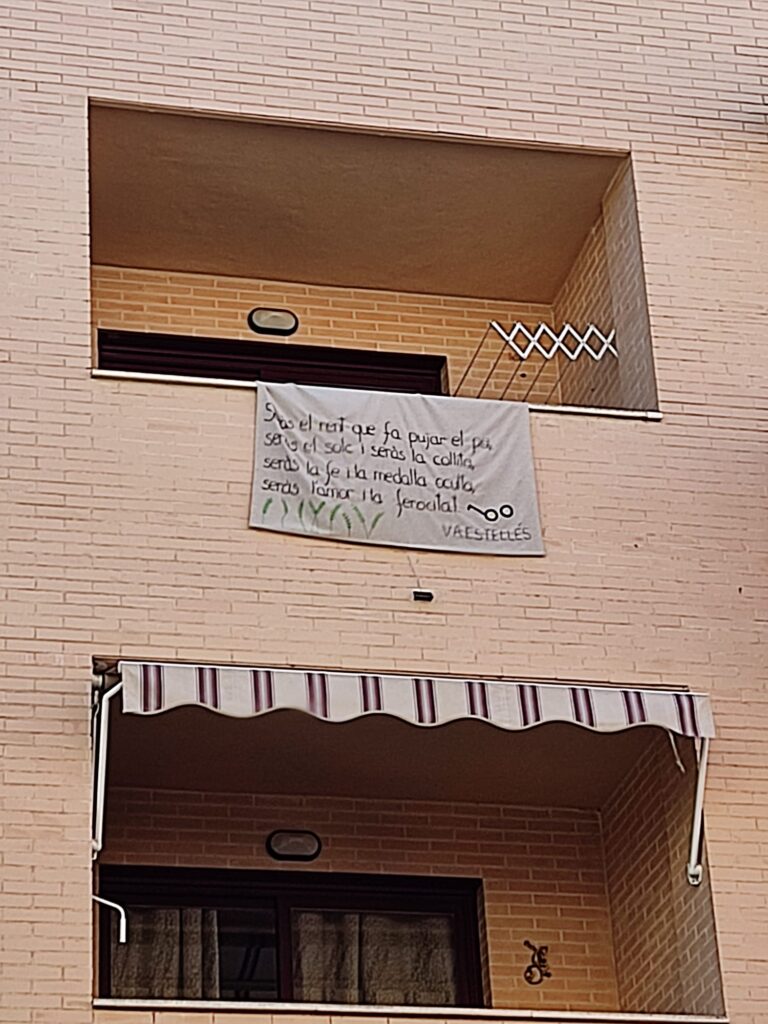 Seràs el rent que fa pujar el pa,
seràs el solc i seràs la collita,
seràs la fe i la medalla oculta,
seràs l'amor i la ferocitat.
V.A ESTELLÉS